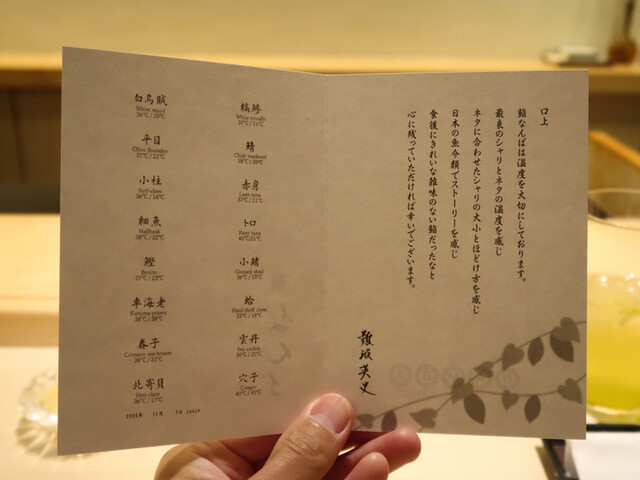 口上
鮨なんばは温度を大切にしております。
最良のシャリとネタの温度を感じ
ネタに合わせたシャリの大小とほどけ方を感じ
日本の魚分類でストーリーを感じ
食後にきれいな雑味のない鮨だったなと
心に残っていただければ幸いでございます。
難波英史
白烏賊
White squid
36℃/20℃
平目
Olive flounder
37℃/22℃
小柱
Surf-clam
36℃/18℃
細魚
Halfbeak
38℃/22℃
鰹
Bonito
37℃/23℃
車海老
Kuruma prawn
38℃/38℃
春子
Crimson sea-bream
38℃/22℃
北寄貝
Hen clam
36℃/17℃
縞鯵
White trevally
37℃/21℃
鯖
Chub mackerel
38℃/20℃
赤身
Lean tuna
37℃/21℃
トロ
Fatty tuna
40℃/21℃
小鰭
Gizzard shad
36℃/19℃
蛤
Hard shell clam
37℃/18℃
雲丹
Sea urchin
36℃/20℃
穴子
Conger
40℃/45℃
11月 7日 Lunch